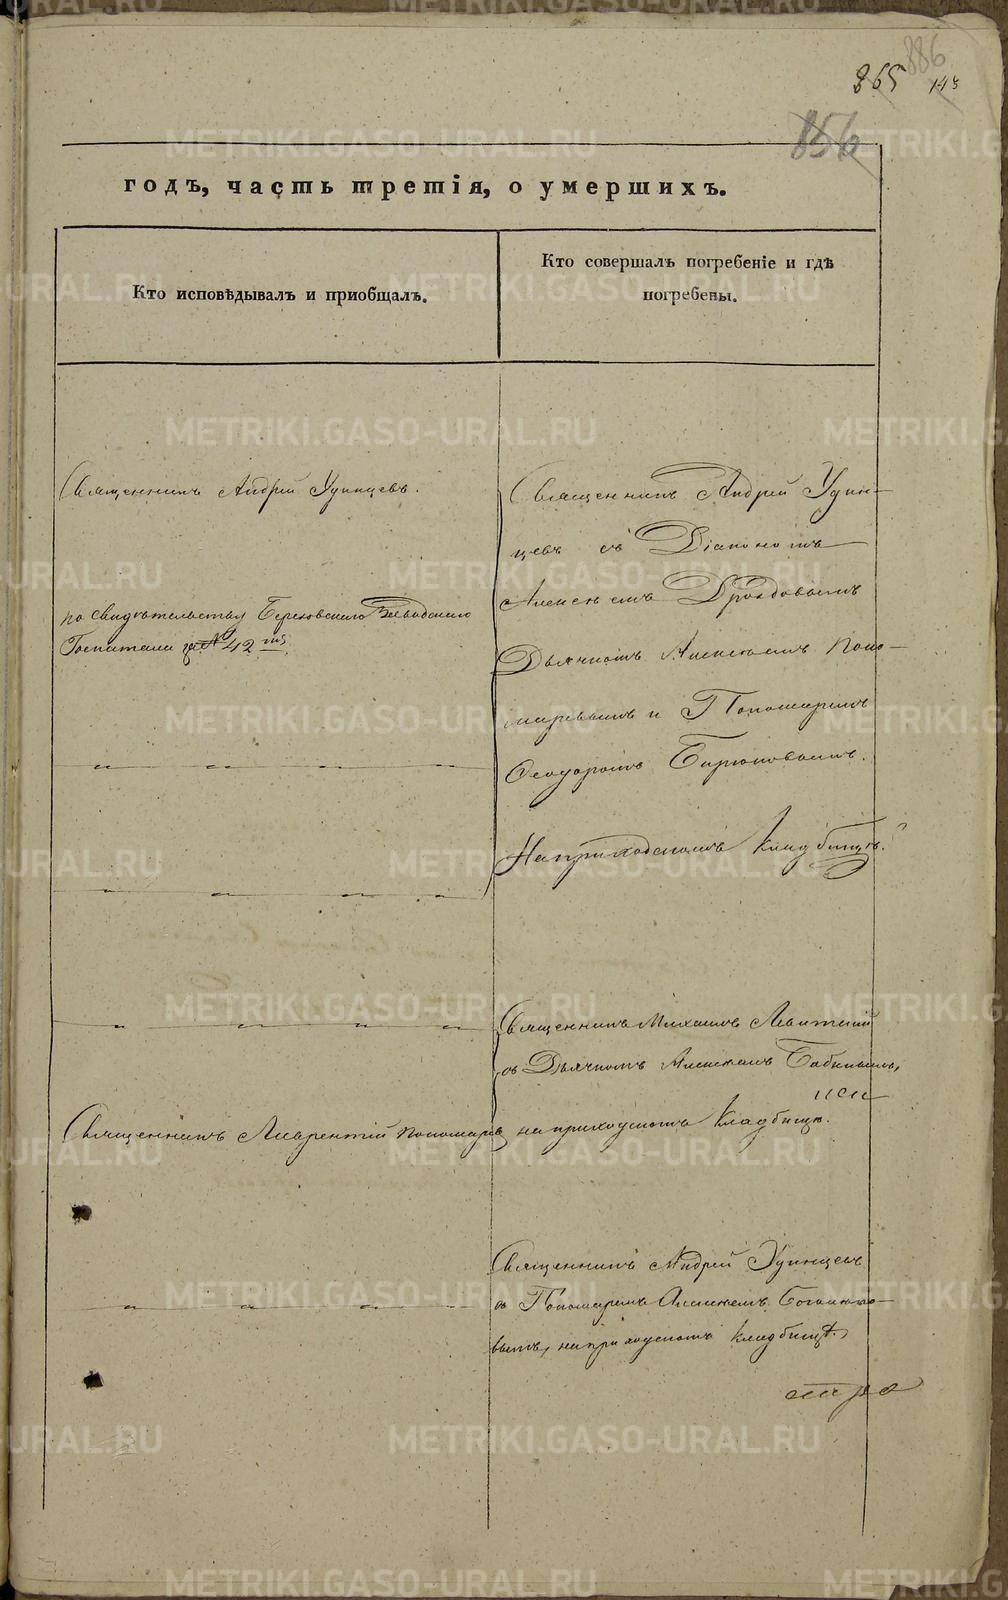 886
865
143
856
годъ, часть третія, о умершихъ.
Кто исповѣдывалъ и приобщалъ.
Кто совершалъ погребеніе и гдѣ
погребены.
Священникъ Андрей Удинцевъ.
по свидѣтельству Березовскаго Заводскаго
Госпиталя за № 42ᵐъ
Священникъ Андрей Удин-
цевъ съ Діакономъ
Алексѣемъ Дроздовымъ
Дьячкомъ Алексѣемъ Поно-
маревымъ и Пономаремъ
Ѳеодоромъ Бирюковымъ.
На приходскомъ кладбищѣ.
Священникъ Михаилъ Левитскій
съ Дьячкомъ Алексѣемъ Бабинымъ,
Священникъ Лаврентій Пономаревъ
на приходскомъ кладбищѣ.
Священникъ Андрей Удинцевъ
съ Пономаремъ Алексѣемъ
вымъ, на приходскомъ кладбищѣ.
METRIKI.GASO-URAL.RU